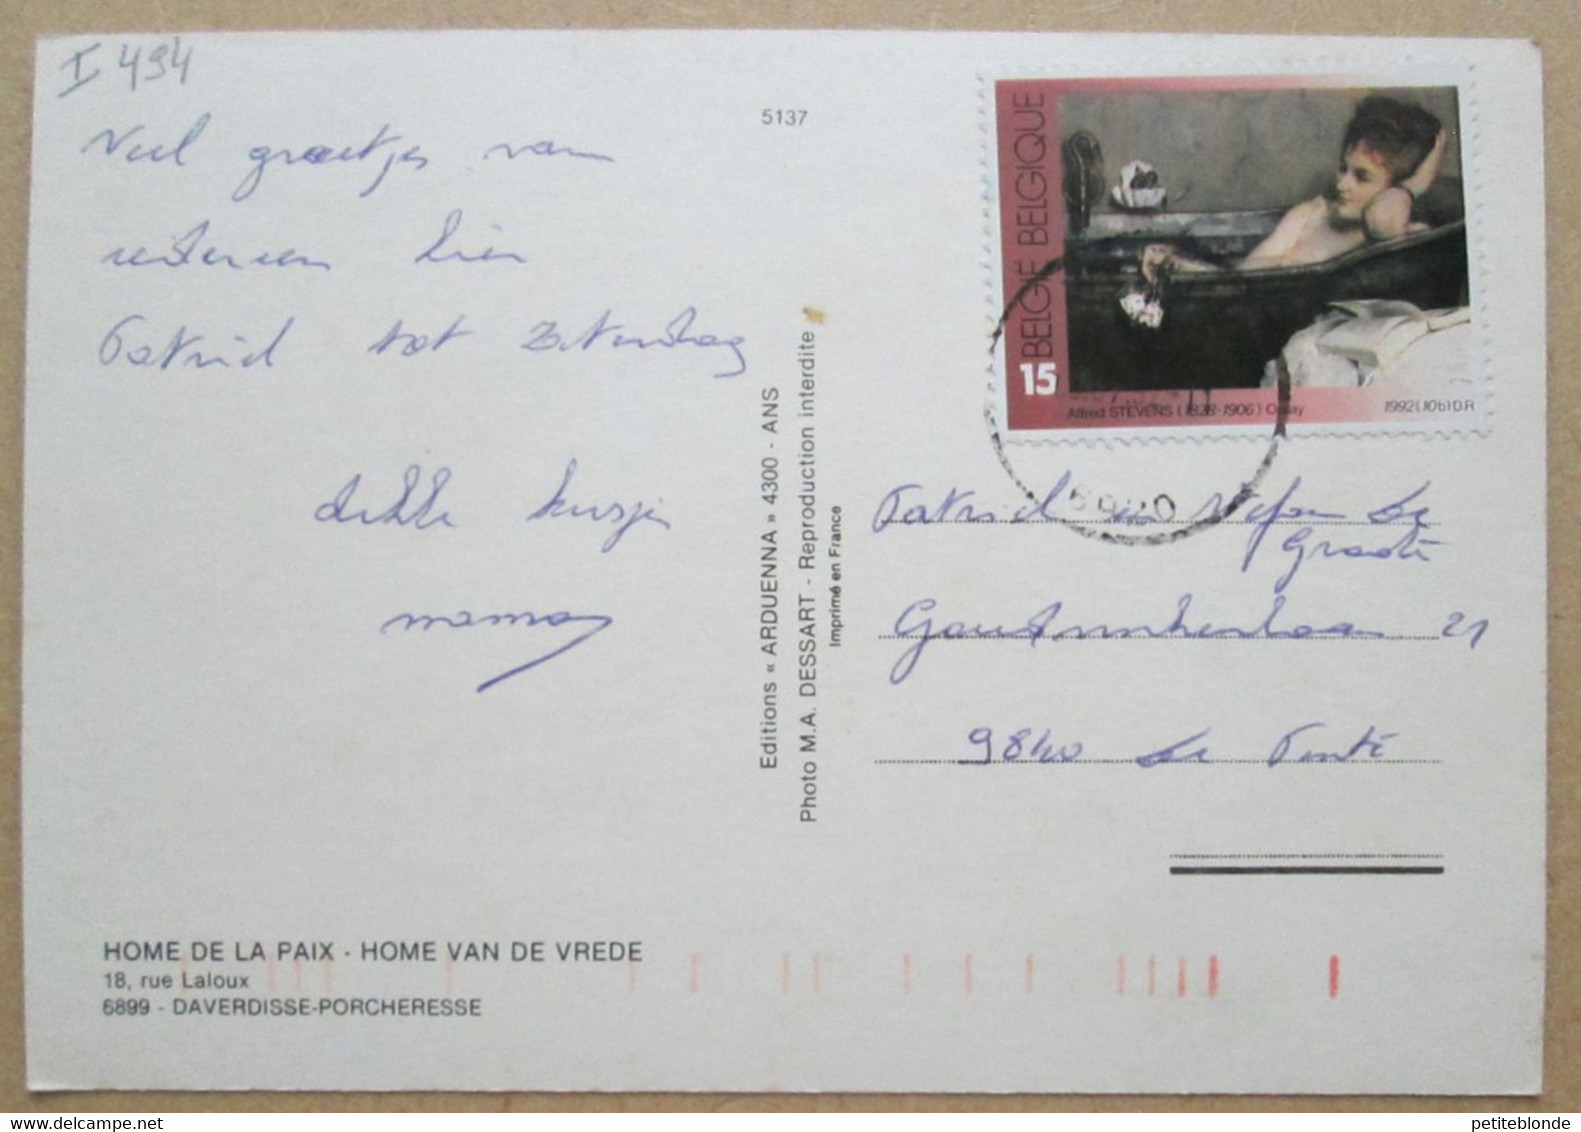 I 494
Veel groetjes van
iedereen hier
Patrick tot zaterdag
dikke kusjes
mama
5137
Editions « ARDUENNA » 4300 - ANS
Photo M.A. DESSART - Reproduction interdite
Imprimé en France
BELGIË BELGIQUE
15
Alfred STEVENS (1828-1906) Orsay
1992 (10b) D.R
6920
Patrick en De
Groote
21
9840 De Pinte
HOME DE LA PAIX - HOME VAN DE VREDE
18, rue Laloux
6899 - DAVERDISSE-PORCHERESSE
www.delcampe.net
petiteblonde